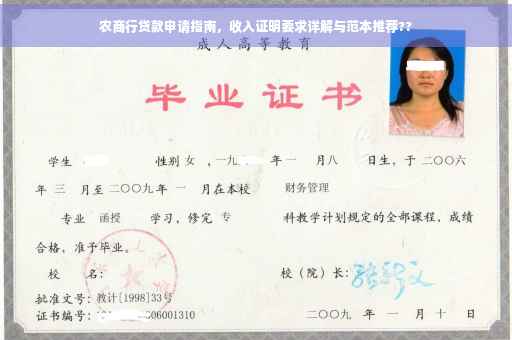 农商行贷款申请指南，收入证明要求详解与范本推荐??
成人高等教育
毕业证书
学生 性别 女 ，一九 年 一 月 八 日生，于 二〇〇六
年 三 月至 二〇〇九 年 一 月在本校 财务管理
专业 函授 学习，修完 专 科教学计划规定的全部课程，成绩
合格，准予毕业。
校 名： 校（院）长：
批准文号：教计[1998]33号
证书编号： 06001310 二〇〇九 年 一 月 十 日